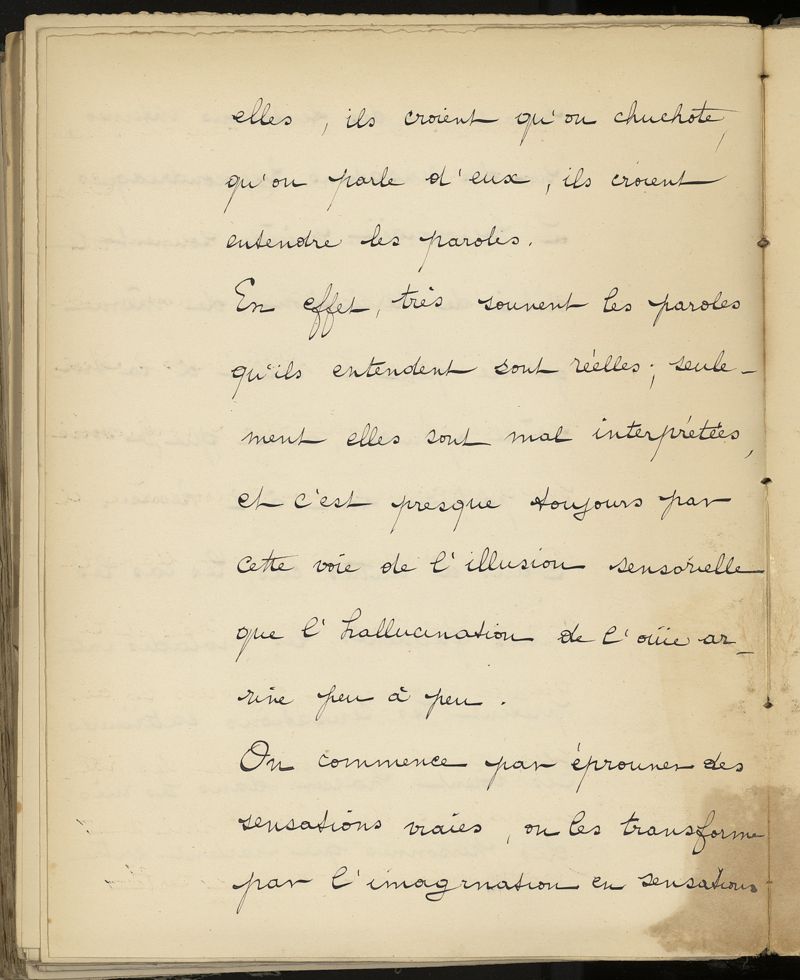 elles, ils croient qu'on chuchote,
qu'on parle d'eux, ils croient
entendre les paroles.
En effet, très souvent les paroles
qu'ils entendent sont réelles; seule-
ment elles sont mal interprétées,
et c'est presque toujours par
cette voie de l'illusion sensorielle
que l'hallucination de l'ouïe ar-
rive peu à peu.
On commence par éprouver des
sensations vraies, on les transforme
par l'imagination en sensations